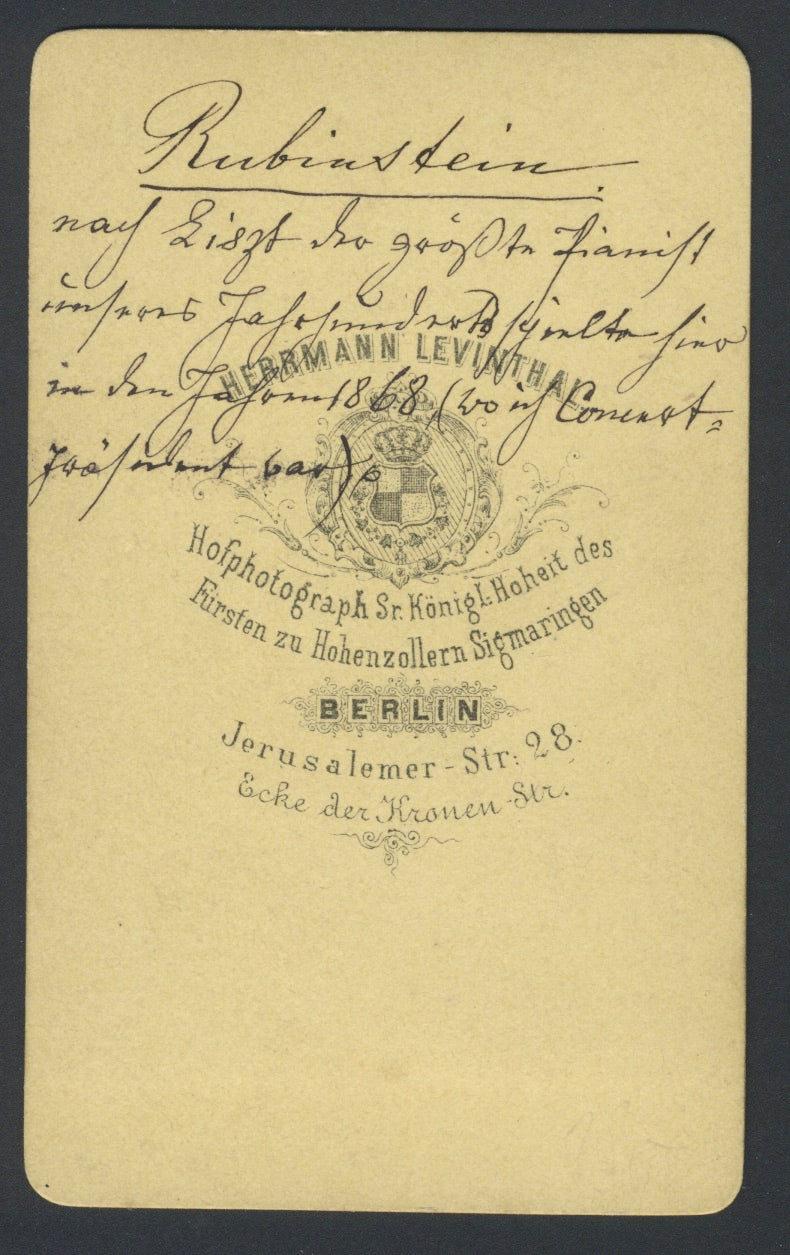 Rubinstein
nach Liszt der größte Pianist
unseres Jahrhunderts spielte hier
in den Jahren 1868 (wo ich Concert-
präsident war).
HERRMANN LEVINTHAL
Hofphotograph Sr. Königl. Hoheit des
Fürsten zu Hohenzollern Sigmaringen
BERLIN
Jerusalemer-Str: 28.
Ecke der Kronen-Str.